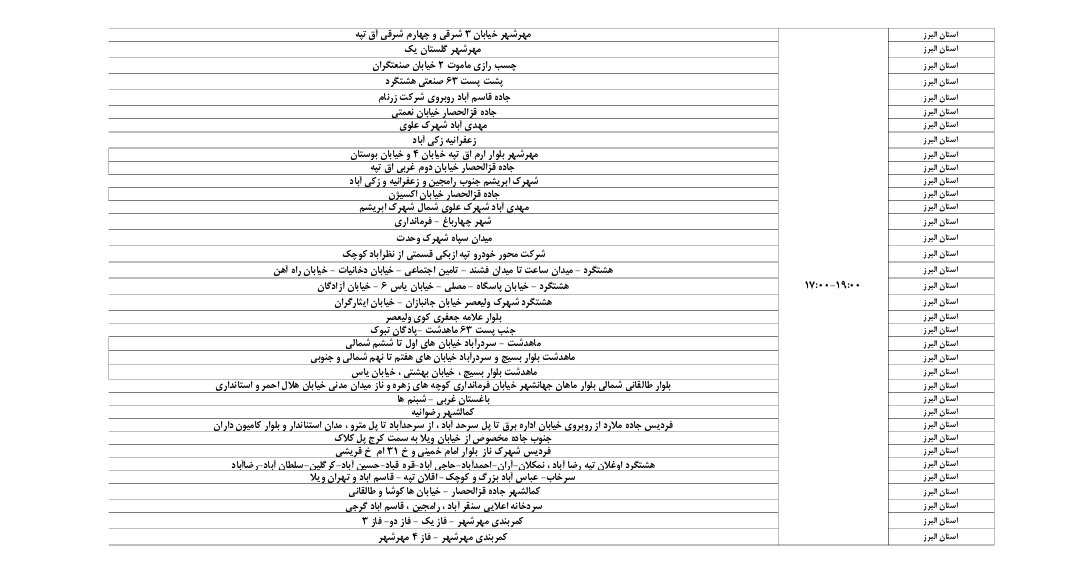 استان البرز مهرشهر خیابان ۳ شرقی و چهارم شرقی آق تپه
استان البرز مهرشهر گلستان یک
استان البرز چسب رازی ماموت ۲ خیابان صنعتگران
استان البرز پشت پست ۶۳ صنعتی هشتگرد
استان البرز جاده قاسم آباد روبروی شرکت زرنام
استان البرز جاده قزالحصار خیابان نعمتی
استان البرز مهدی آباد شهرک علوی
استان البرز زعفرانیه زکی آباد
استان البرز مهرشهر بلوار ارم اق تپه خیابان ۴ و خیابان بوستان
استان البرز جاده قزالحصار خیابان دوم غربی اق تپه
استان البرز شهرک ابریشم جنوب رامجین و زعفرانیه و زکی آباد
استان البرز جاده قزالحصار خیابان اکسیژن
استان البرز مهدی آباد شهرک علوی شمال شهرک ابریشم
استان البرز شهر چهارباغ - فرمانداری
استان البرز میدان سپاه شهرک وحدت
استان البرز شرکت محور خودرو تپه ازبکی قسمتی از نظرآباد کوچک
استان البرز هشتگرد - میدان ساعت تا میدان فشند - تامین اجتماعی - خیابان دخانیات - خیابان راه آهن
استان البرز ۱۷:۰۰-۱۹:۰۰ هشتگرد - خیابان پاسگاه - مصلی - خیابان یاس ۶ - خیابان آزادگان
استان البرز هشتگرد شهرک ولیعصر خیابان جانبازان - خیابان ایثارگران
استان البرز بلوار علامه جعفری کوی ولیعصر
استان البرز جنب پست ۶۳ ماهدشت -پادگان تبوک
استان البرز ماهدشت - سردرآباد خیابان های اول تا ششم شمالی
استان البرز ماهدشت بلوار بسیج و سردرآباد خیابان های هفتم تا نهم شمالی و جنوبی
استان البرز ماهدشت بلوار بسیج ، خیابان بهشتی ، خیابان یاس
استان البرز بلوار طالقانی شمالی بلوار ماهان جهانشهر خیابان فرمانداری کوچه های زهره و ناز میدان مدنی خیابان هلال احمر و استانداری
استان البرز باغستان غربی - شبنم ها
استان البرز کمالشهر رضوانیه
استان البرز فردیس جاده ملارد از روبروی خیابان اداره برق تا پل سرحد آباد ، از سرحدآباد تا پل مترو ، مدان استاندار و بلوار کامیون داران
استان البرز جنوب جاده مخصوص از خیابان ویلا به سمت کرج پل کلاک
استان البرز فردیس شهرک ناز بلوار امام خمینی و خ ۳۱ ام خ قریشی
استان البرز هشتگرد اوغلان تپه رضا آباد ، نمکلان-آران-احمدآباد-حاجی آباد-قره قباد-حسین آباد-کرگلین-سلطان آباد-رضاآباد
استان البرز سرخاب- عباس آباد بزرگ و کوچک- اقلان تپه - قاسم اباد و تهران ویلا
استان البرز کمالشهر جاده قزالحصار - خیابان ها کوشا و طالقانی
استان البرز سردخانه اعلایی سنقر آباد ، رامجین ، قاسم اباد گرجی
استان البرز کمربندی مهرشهر - فاز یک - فاز دو- فاز ۳
استان البرز کمربندی مهرشهر - فاز ۴ مهرشهر